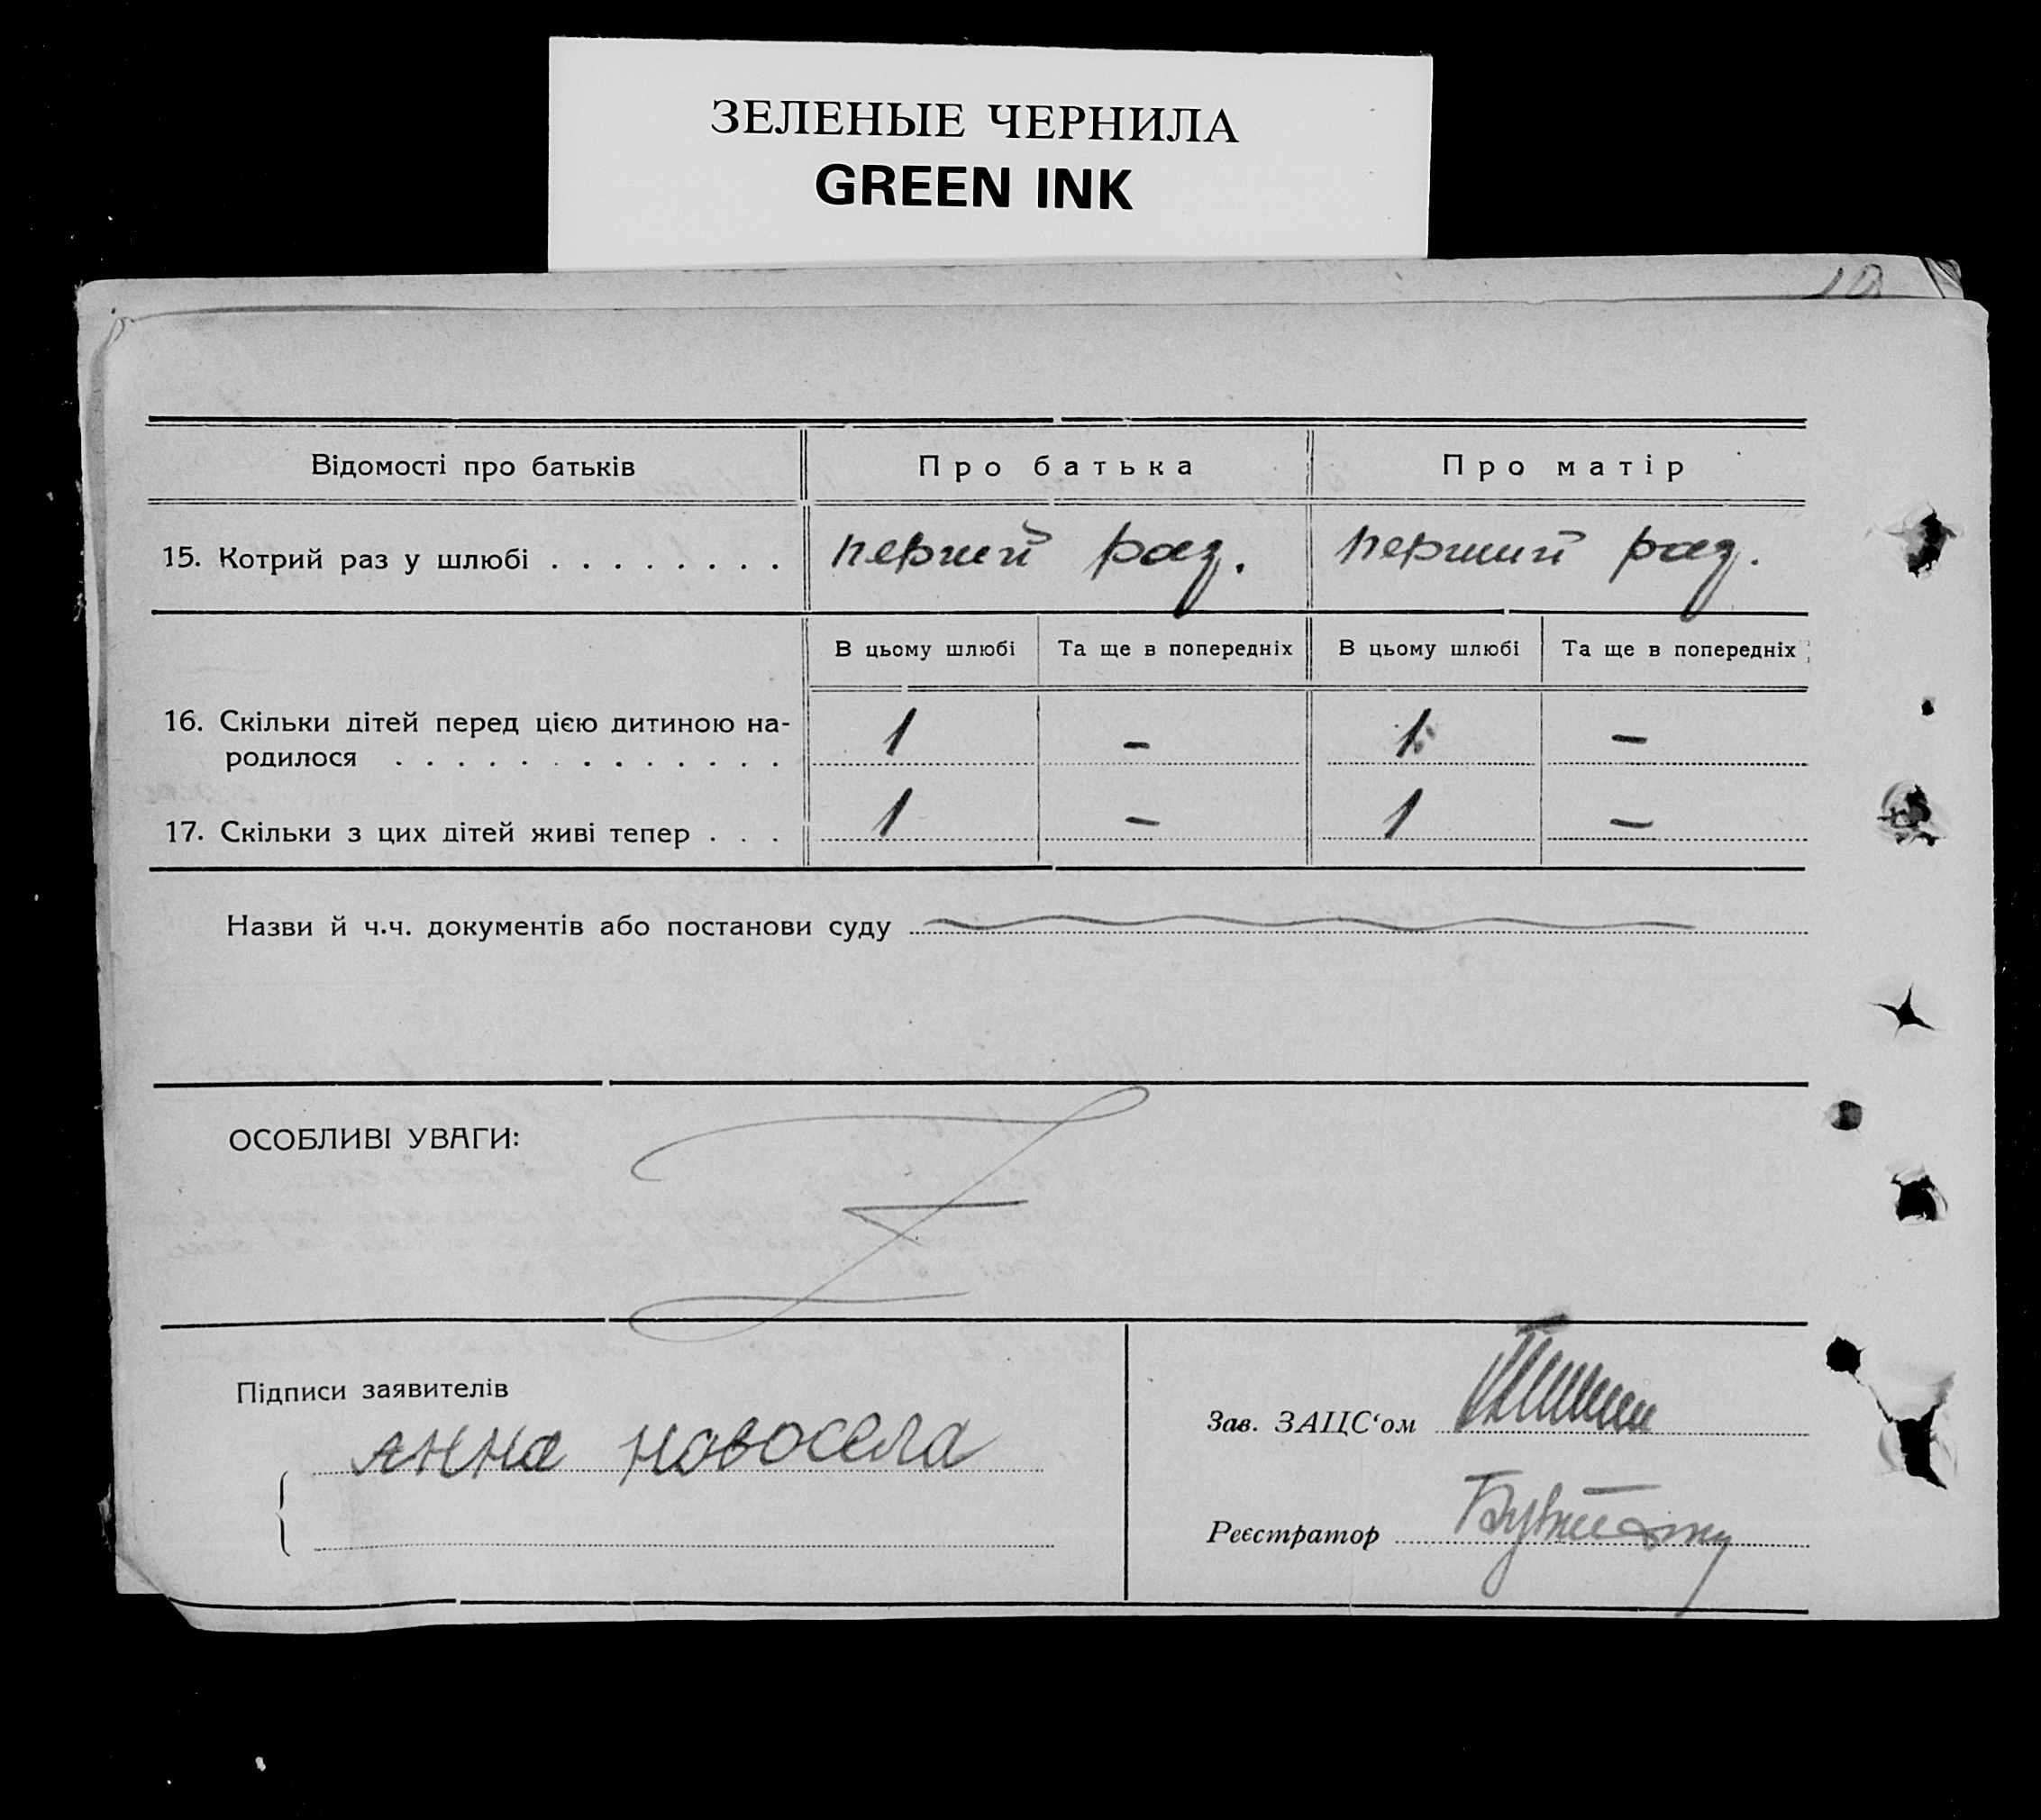 ЗЕЛЕНЫЕ ЧЕРНИЛА
GREEN INK
10
Відомості про батьків Про батька Про матір
15. Котрий раз у шлюбі . . . . . . . . перший раз. перший раз.
В цьому шлюбі Та ще в попередніх В цьому шлюбі Та ще в попередніх
16. Скільки дітей перед цією дитиною на-
родилося . . . . . . . . . . . . . 1 – 1 –
17. Скільки з цих дітей живі тепер . . . 1 – 1 –
Назви й ч.ч. документів або постанови суду
ОСОБЛИВІ УВАГИ:
Підписи заявителів
Анна Новосела
Зав. ЗАЦС‘ом
Реєстратор